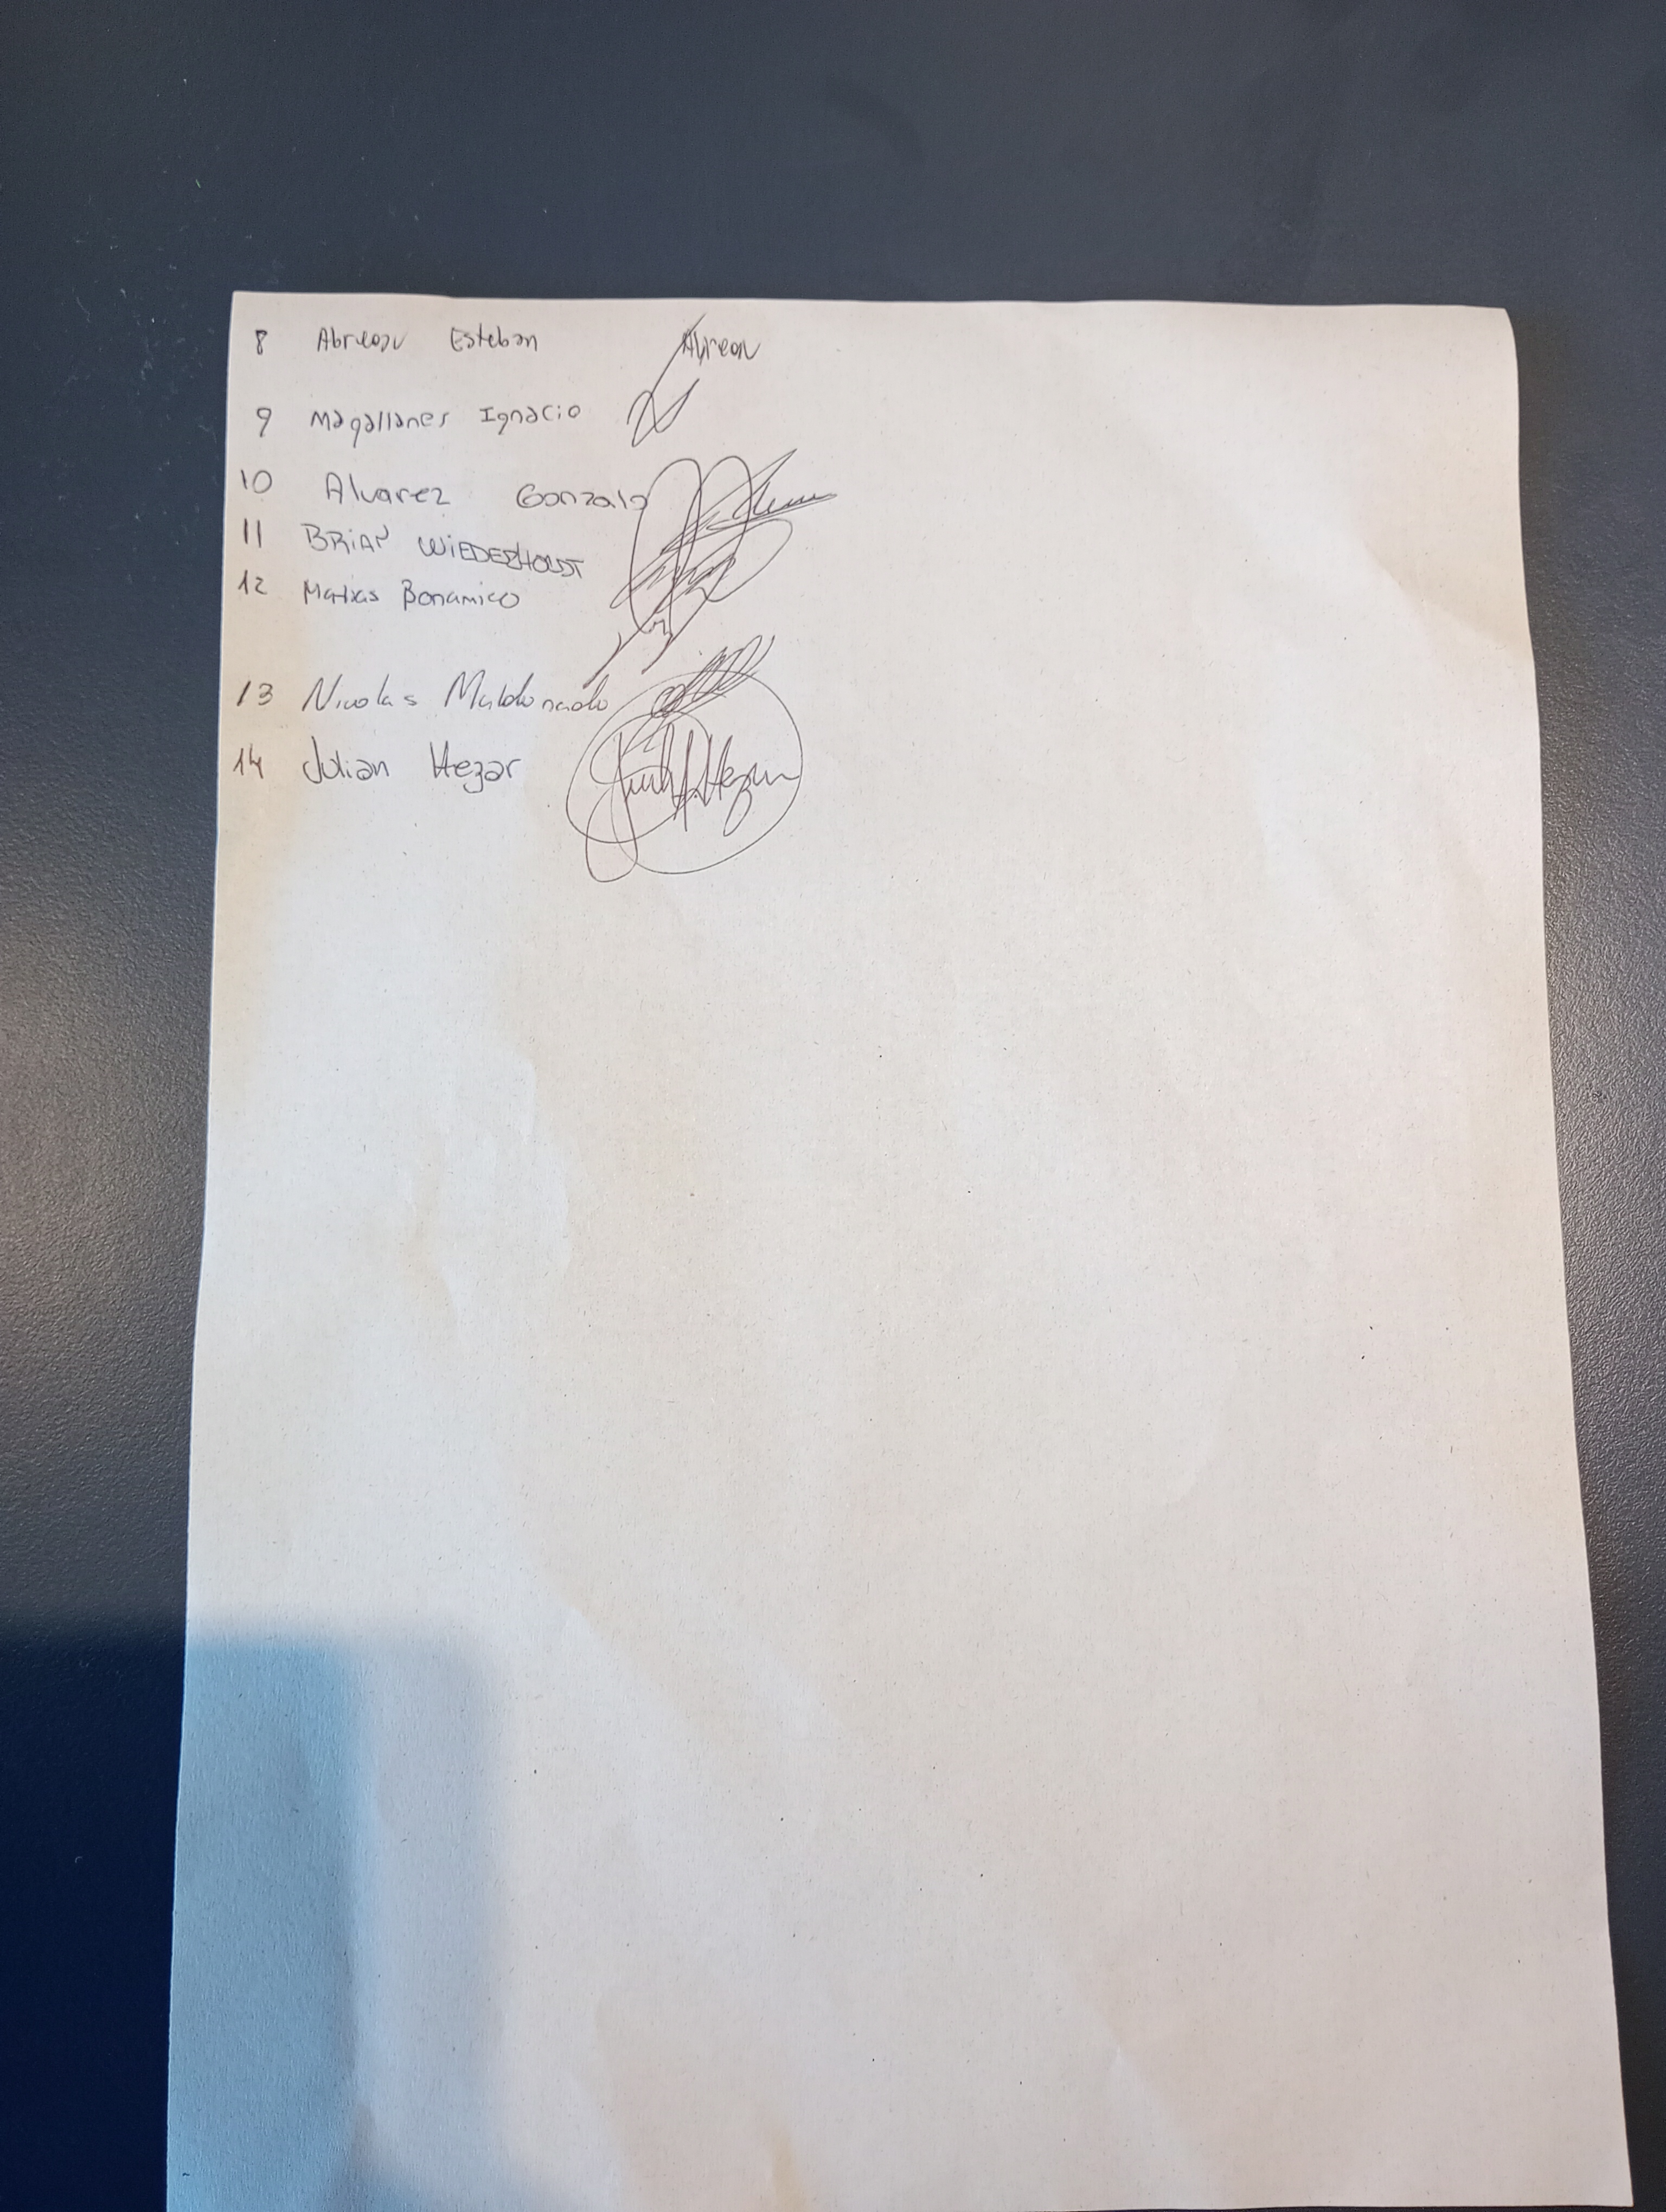 8 Abreau Esteban Abreau
9 Magallanes Ignacio
10 Alvarez Gonzalo
11 BRIAN WIEDERHOLDT
12 Matias Bonamico
13 Nicolas Maldonado
14 Julian Hezar